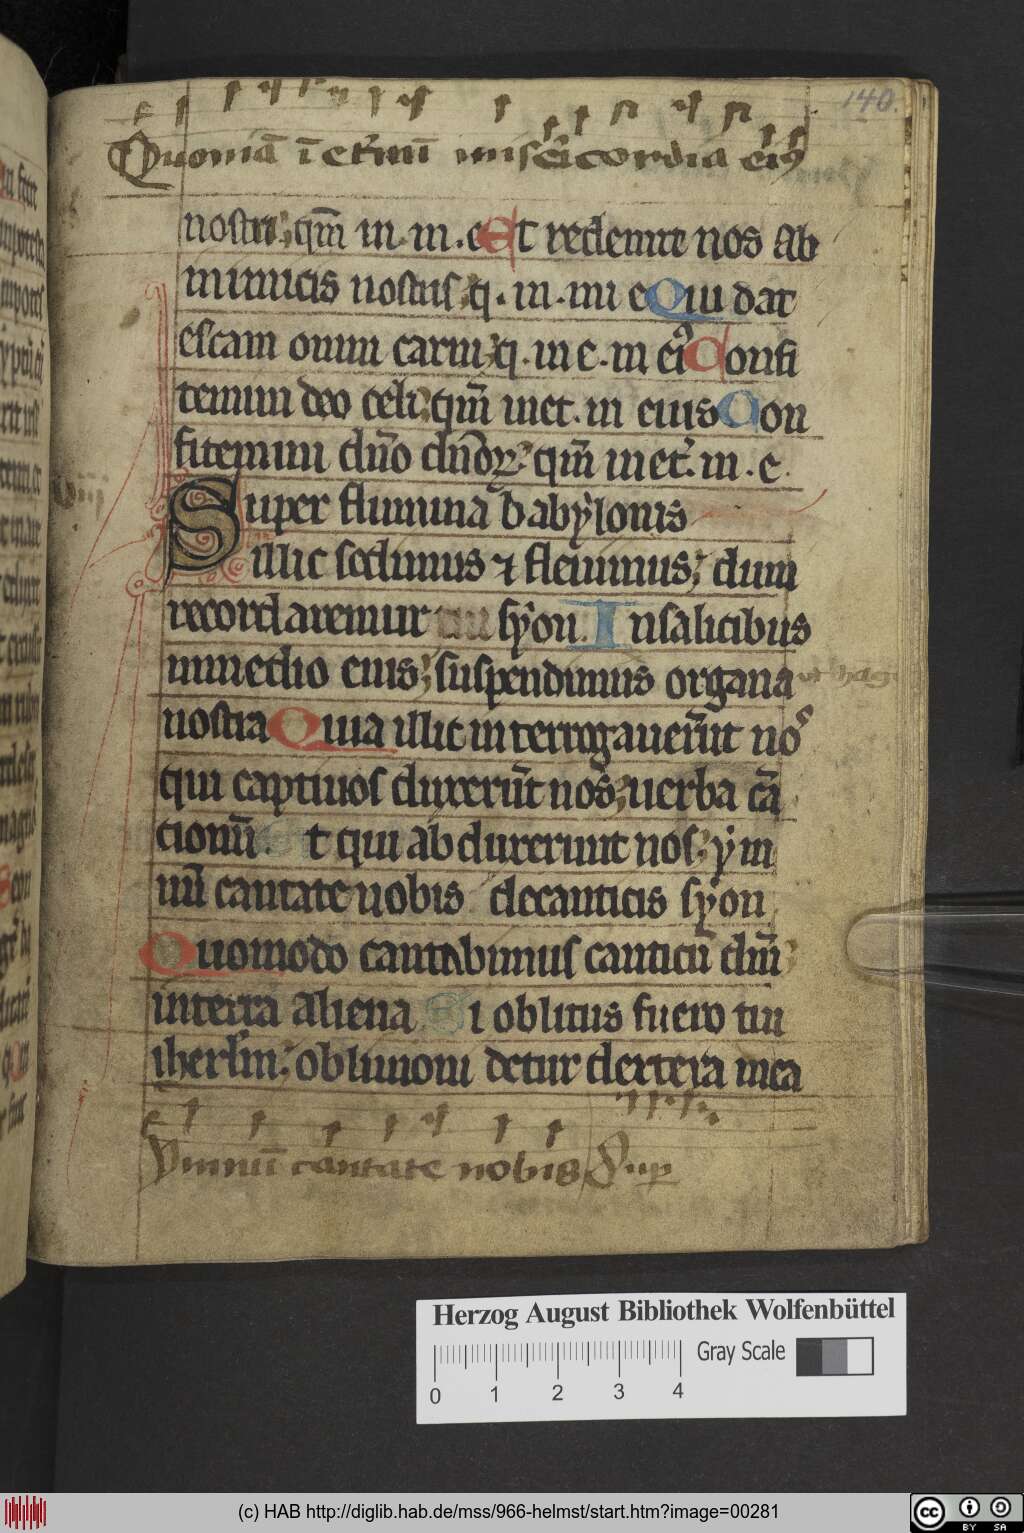 140.
Quoniā ī et̄nū miſericordia ei9
noſtri; qm̄ in . m . e Et redemit nos ab
inimicis noſtris; q . in . mi e Qui dat
eſcam omni carni; q . in e . m ei9 Confi
temini deo celi; qm̄ in et . m eius Con
fitemini dn̄o dn̄oꝝ; qm̄ in et̄ . m . e
Super flumina babẏlonis
illic ſedimus ⁊ fleuimus; dum
recordaremur tui ſẏon. In ſalicibus
in medio eius; ſuſpendimus organa
noſtra Quia illic interrogauer̄ūt nos
qui captiuoſ duxerūt nos; uerba cā
tionū. t qui abduxerunt noſ; ẏm
nū cantate nobis decanticis ſẏon
Quomodo cantabimuſ canticū dn̄i
interra aliena Si oblitus fuero tui
iherl̄m; obliuioni detur dextera mea
Ymnū cantate nobis Sup
Herzog August Bibliothek Wolfenbüttel
Gray Scale
0 1 2 3 4
(c) HAB http://diglib.hab.de/mss/966-helmst/start.htm?image=00281
cc BY SA